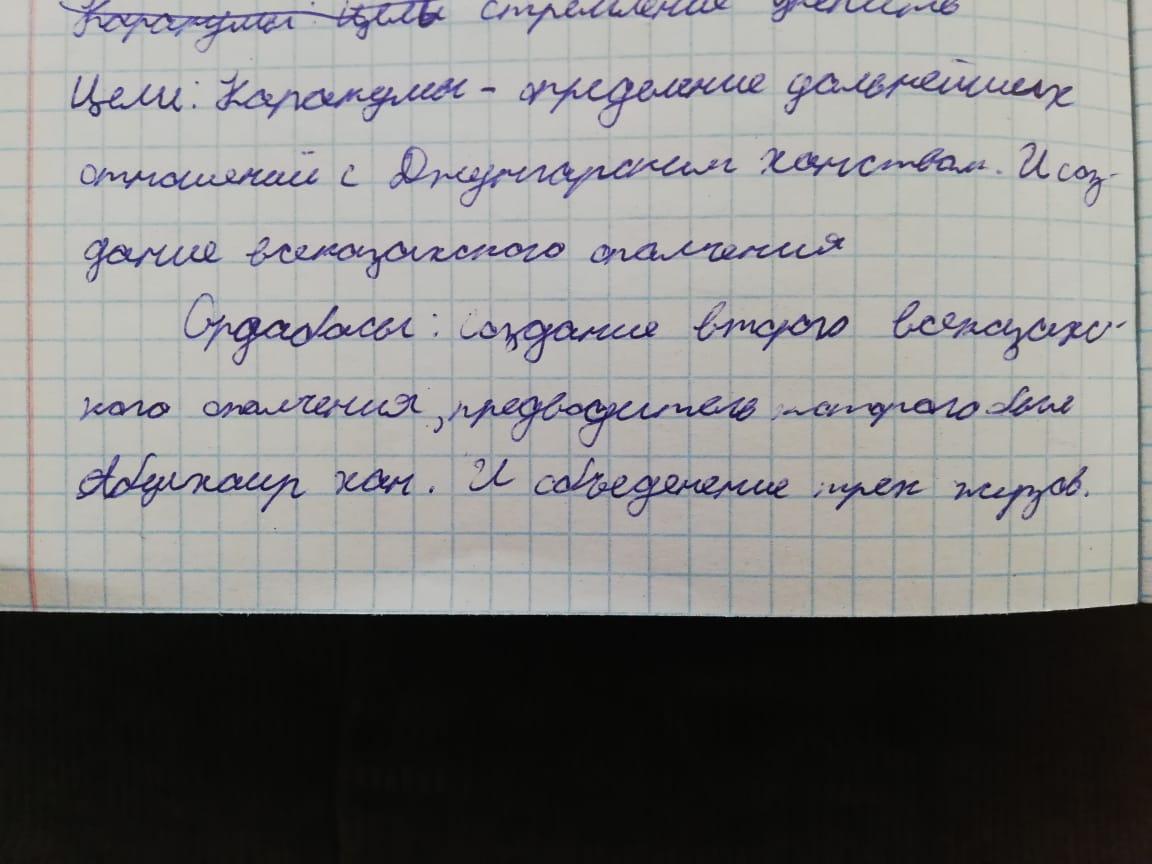 Каракумы: Цель стремление
Цели: Каракумы - определение дальнейших
отношений с Джунгарским ханством. И соз-
дание всеказахского ополчения
Ордабасы: Создание второго всеказахс-
кого ополчения, предводитель которого был
Абулхаир хан. И объеденение трех жузов.